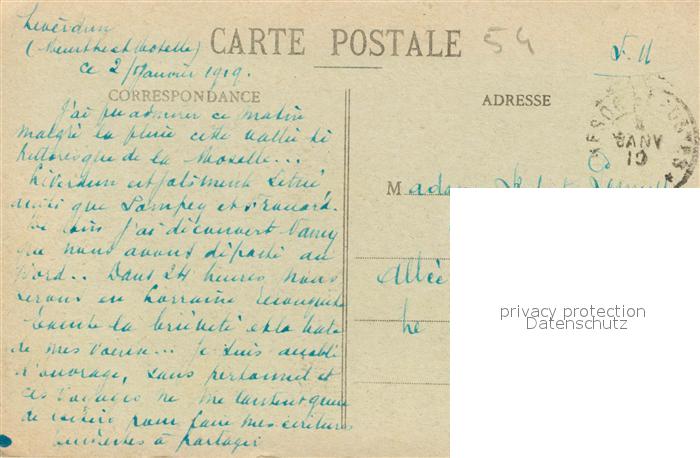 Liverdun
(Meurthe et Moselle)
ce 2 Janvier 1919.
CARTE POSTALE
54
F. M
CORRESPONDANCE
ADRESSE
J'ai pu admirer ce matin
malgré la pluie cette vallée si
pittoresque de la Moselle...
Liverdun est joliment situé,
ainsi que Pompey et Frouard.
j'ai découvert Nancy
que nous avons départi au
Nord.. Dans 24 heures nous
serons en Lorraine reconquise
la brièveté et la hâte
de mes voeux... Je suis accablé
d'ouvrage, sans personnel et
ces voyages ne me
de loisirs pour faire mes écritures
à partager
JANV
19
Madame
Allée
Le
privacy protection
Datenschutz